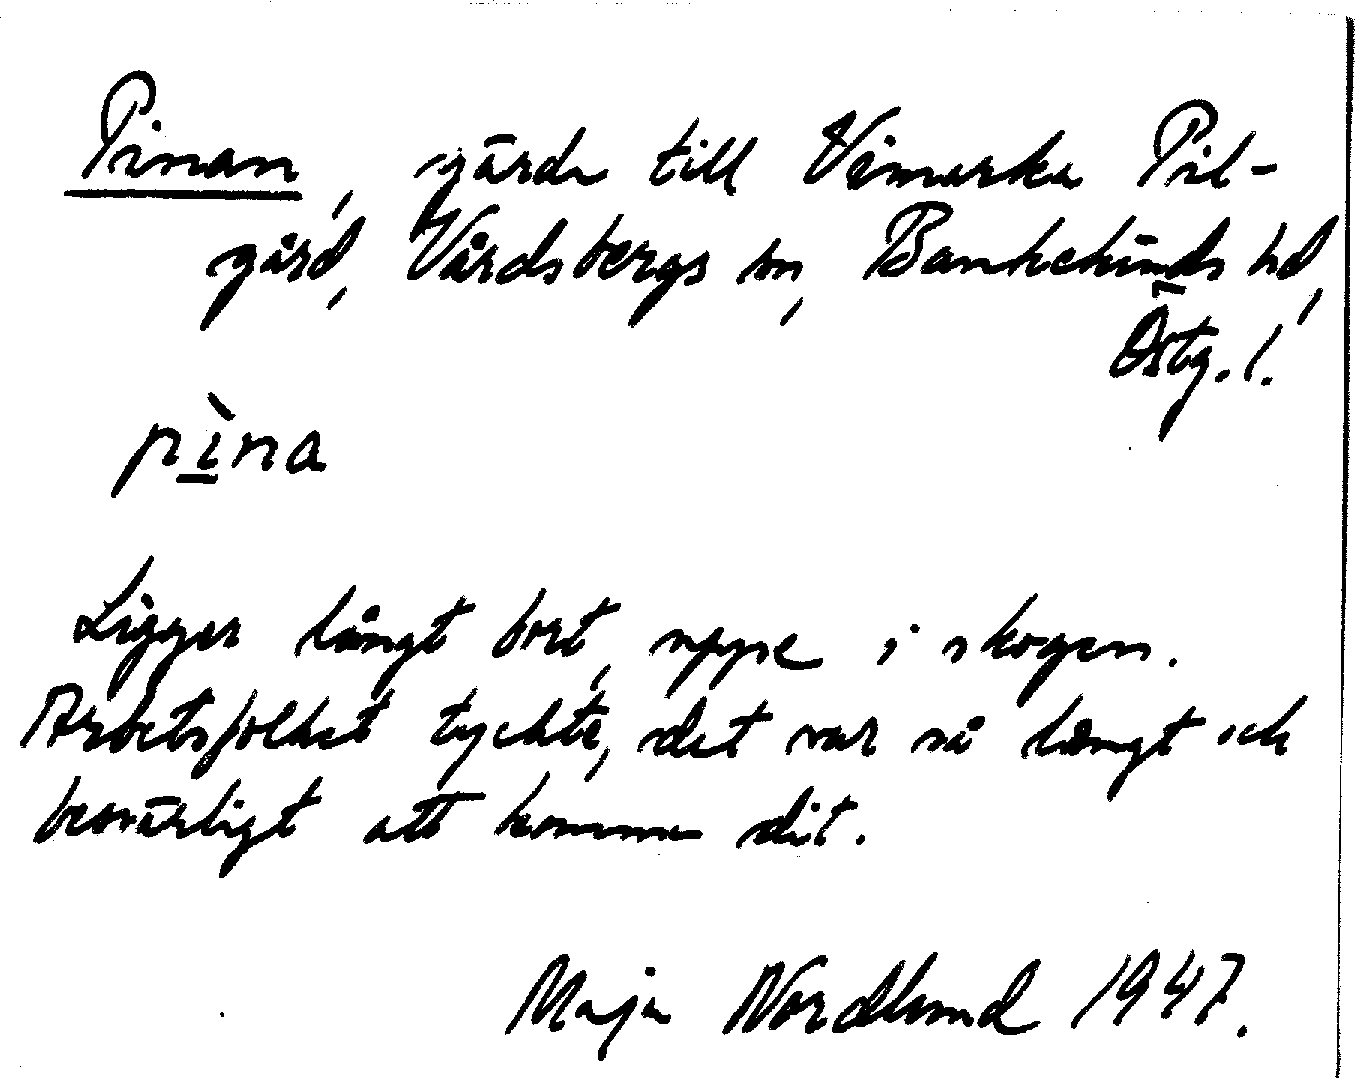 Pinan, gärde till Vimarka Pil-
gård, Vårdsbergs sn, Bankekinds hd,
Östg. l.
pìna
Ligger långt bort, uppe i skogen.
Arbetsfolket tyckte, det var så långt och
besvärligt att komma dit.
Maja Nordlund 1947.